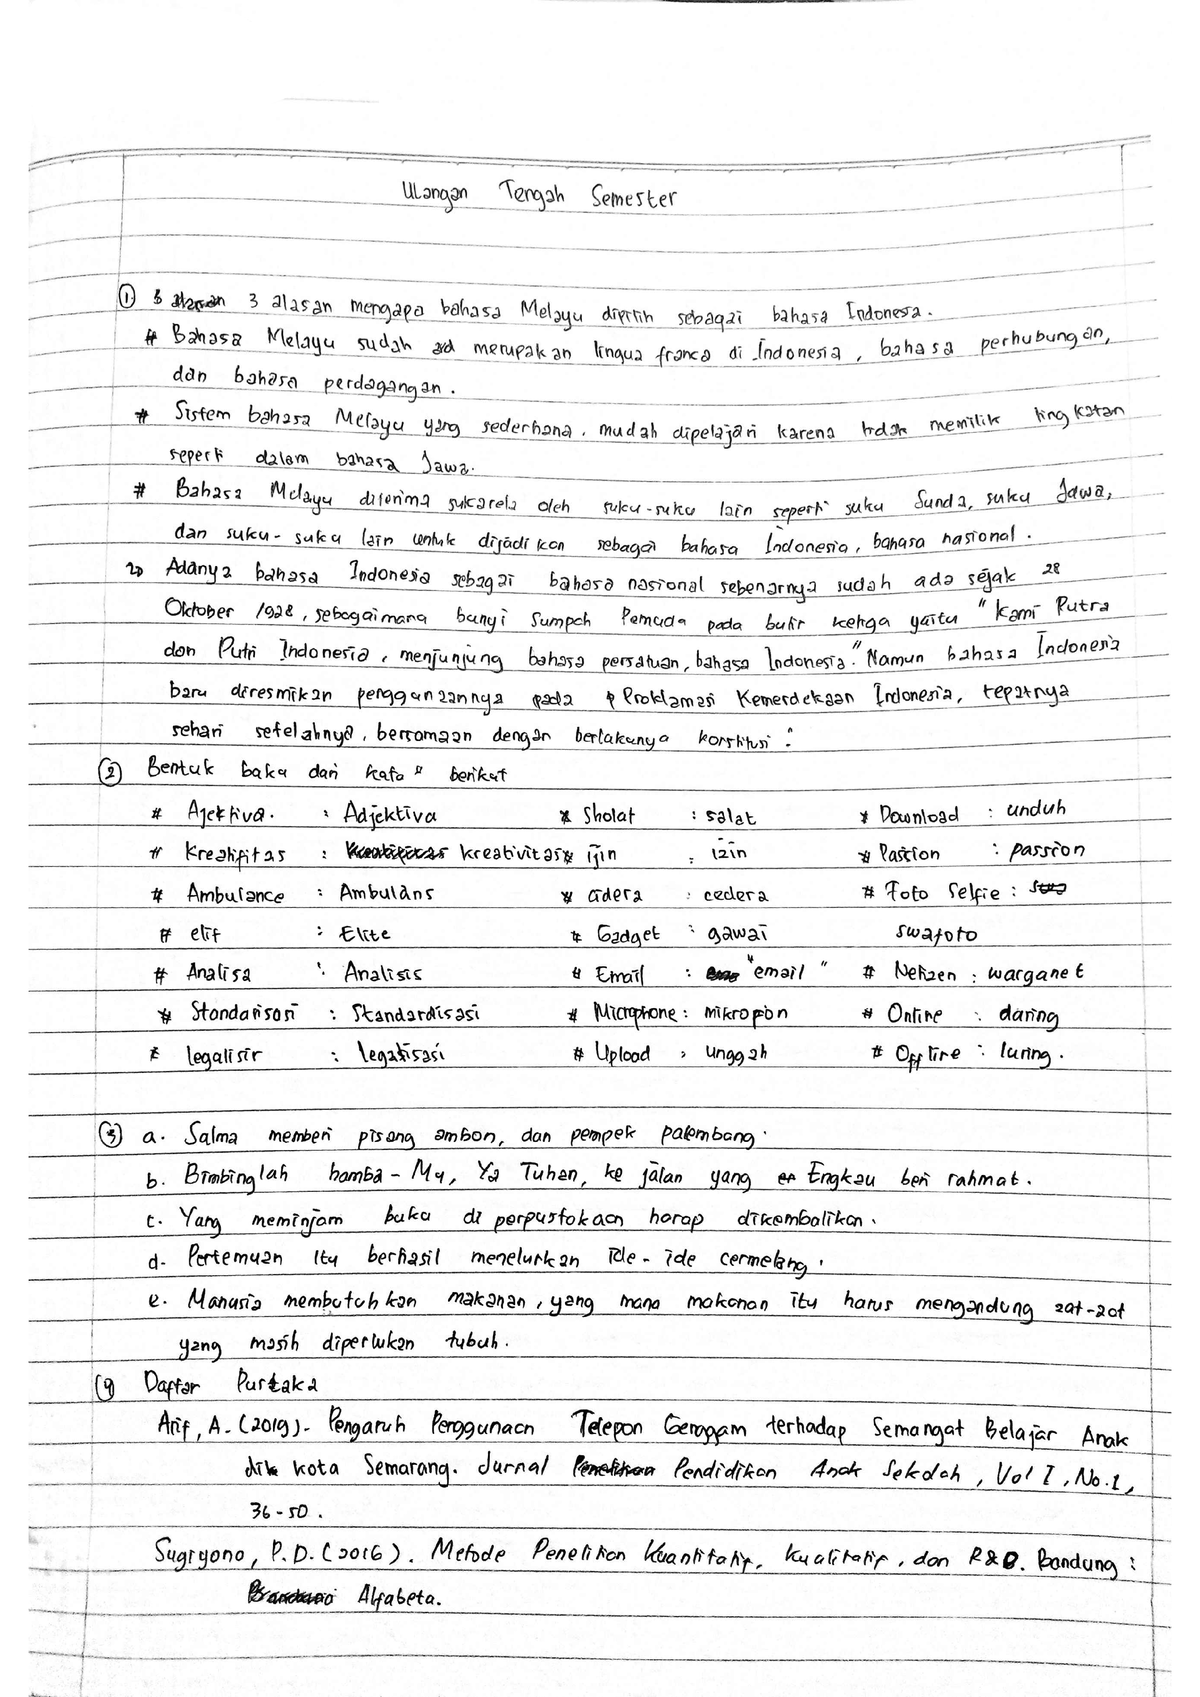 Ulangan Tengah Semester
① 3 alasan mengapa bahasa Melayu dipilih sebagai bahasa Indonesa.
# Bahasa Melayu sudah merupakan lingua franca di Indonesia, bahasa perhubungan,
dan bahasa perdagangan.
# Sistem bahasa Melayu yang sederhana. mudah dipelajari karena tidak memilik tingkatan
seperti dalam bahasa Jawa.
# Bahasa Melayu diterima sukarela oleh suku-suku lain seperti suku Sunda, suku Jawa,
dan suku-suku lain untuk dijadikan sebagai bahasa Indonesia, bahasa nasional.
2) Adanya bahasa Indonesia sebagai bahasa nasional sebenarnya sudah ada sejak 28
Oktober 1928, sebagaimana bunyi Sumpah Pemuda pada butir ketiga yaitu "Kami Putra
dan Putri Indonesia, menjunjung bahasa persatuan, bahasa Indonesia". Namun bahasa Indonesia
baru diresmikan penggunaannya pada Proklamasi Kemerdekaan Indonesia, tepatnya
sehari setelahnya, bersamaan dengan berlakunya konstitusi."
② Bentuk baku dari kata" berikut
# Ajektiva. : Adjektiva * Sholat : salat * Download : unduh
# Kreatifitas : kreativitas * ijin : izin * Pastion : passion
# Ambulance : Ambulans * cidera : cedera # Foto Selfie :
# elit : Elite * Gadget : gawai swafoto
# Analisa : Analisis # Email : "email" # Netizen : warganet
* Standarisasi : Standardisasi # Microphone : mikropon # Online : daring
* legalisir : legalisasi # Upload : unggah # Offline : luring.
③ a. Salma memberi pisang ambon, dan pempek palembang.
b. Bimbinglah hamba-Mu, Ya Tuhan, ke jalan yang Engkau beri rahmat.
c. Yang meminjam buku di perpustakaan harap dikembalikan.
d. Pertemuan itu berhasil menelurkan ide-ide cermelang.
e. Manusia membutuhkan makanan, yang mana makanan itu harus mengandung zat-zat
yang masih diperlukan tubuh.
④ Daftar Pustaka
Arif, A. (2019). Pengaruh Penggunaan Telepon Genggam terhadap Semangat Belajar Anak
di kota Semarang. Jurnal Pendidikan Anak Sekolah, Vol I, No.1,
36-50.
Sugiyono, P.D. (2016). Metode Penelitian Kuantitatif, Kualitatif, dan R&D. Bandung:
Alfabeta.